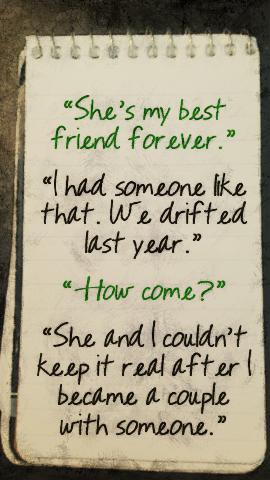 “She's my best
friend forever.”
“I had someone like
that. We drifted
last year.”
“How come?”
“She and I couldn't
keep it real after I
became a couple
with someone.”